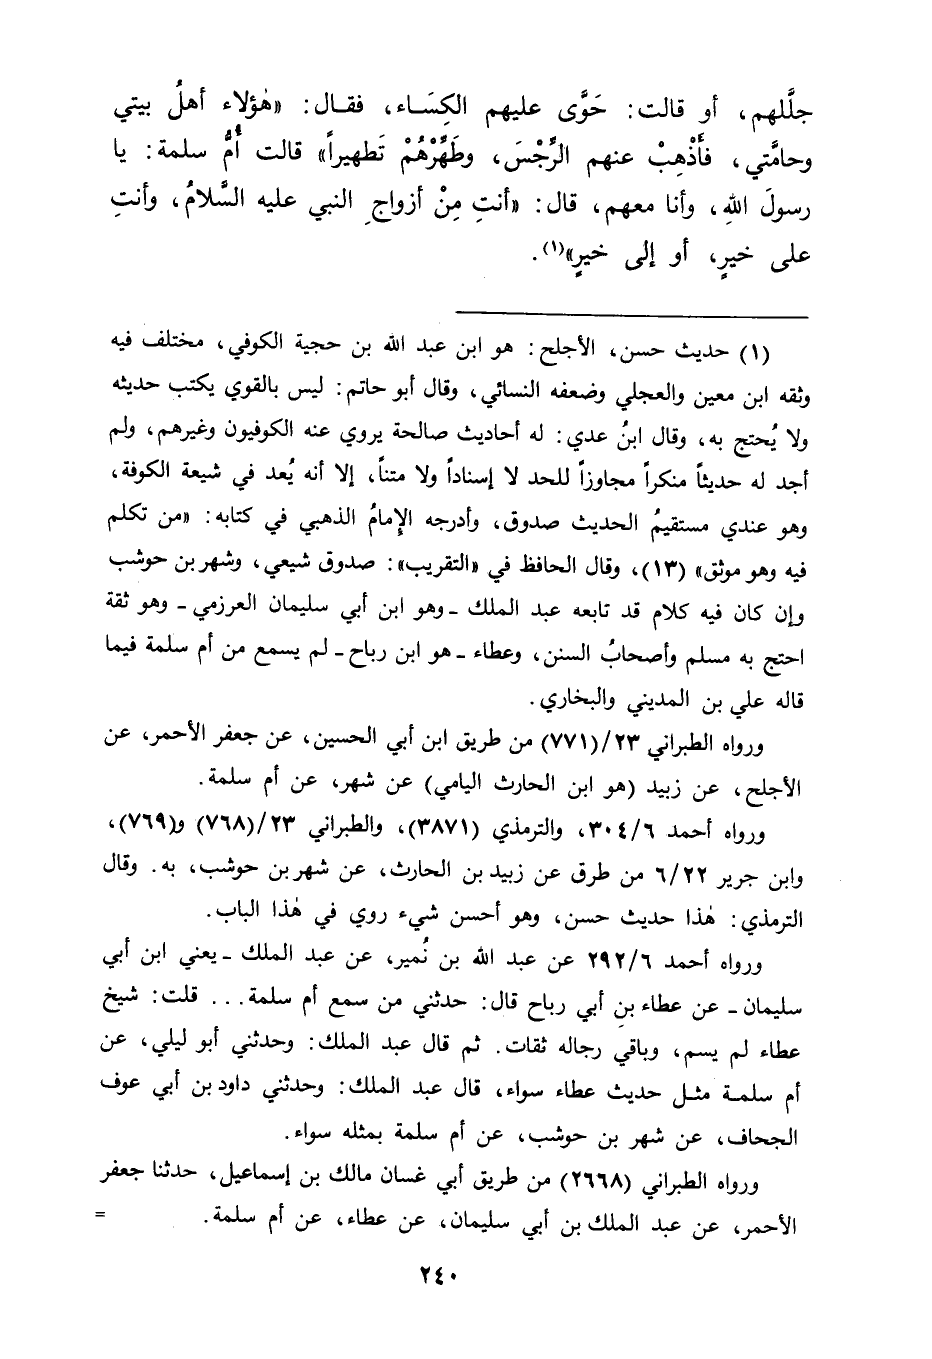 جلَّلهم، أو قالت: حَوَّى عليهم الكِسَاء، فقال: «هٰؤلاء أهلُ بيتي
وحامَّتي، فَأَذْهِبْ عنهم الرِّجْسَ، وطَهِّرْهُمْ تَطهيراً» قالت أُمُّ سلمة: يا
رسولَ اللهِ، وأنا معهم، قال: «أنتِ مِنْ أزواجِ النبي عليه السَّلامُ، وأنتِ
على خيرٍ، أو إلى خيرٍ»(١).
(١) حديث حسن، الأجلح: هو ابن عبد الله بن حجية الكوفي، مختلف فيه
وثقه ابن معين والعجلي وضعفه النسائي، وقال أبو حاتم: ليس بالقوي يكتب حديثه
ولا يُحتج به، وقال ابنُ عدي: له أحاديث صالحة يروي عنه الكوفيون وغيرهم، ولم
أجد له حديثاً منكراً مجاوزاً للحد لا إسناداً ولا متناً، إلا أنه يُعد في شيعة الكوفة،
وهو عندي مستقيمُ الحديث صدوق، وأدرجه الإِمامُ الذهبي في كتابه: «من تكلم
فيه وهو موثق» (١٣)، وقال الحافظ في «التقريب»: صدوق شيعي، وشهر بن حوشب
وإن كان فيه كلام قد تابعه عبد الملك ـ وهو ابن أبي سليمان العرزمي ـ وهو ثقة
احتج به مسلم وأصحابُ السنن، وعطاء ـ هو ابن رباح ـ لم يسمع من أم سلمة فيما
قاله علي بن المديني والبخاري.
ورواه الطبراني ٢٣/(٧٧١) من طريق ابن أبي الحسين، عن جعفر الأحمر، عن
الأجلح، عن زبيد (هو ابن الحارث اليامي) عن شهر، عن أم سلمة.
ورواه أحمد ٣٠٤/٦، والترمذي (٣٨٧١)، والطبراني ٢٣/(٧٦٨) و(٧٦٩)،
وابن جرير ٦/٢٢ من طرق عن زبيد بن الحارث، عن شهر بن حوشب، به. وقال
الترمذي: هٰذا حديث حسن، وهو أحسن شيء روي في هٰذا الباب.
ورواه أحمد ٢٩٢/٦ عن عبد الله بن نُمير، عن عبد الملك ـ يعني ابن أبي
سليمان ـ عن عطاء بن أبي رباح قال: حدثني من سمع أم سلمة... قلت: شيخ
عطاء لم يسم، وباقي رجاله ثقات. ثم قال عبد الملك: وحدثني أبو ليلى، عن
أم سلمة مثل حديث عطاء سواء، قال عبد الملك: وحدثني داود بن أبي عوف
الجحاف، عن شهر بن حوشب، عن أم سلمة بمثله سواء.
ورواه الطبراني (٢٦٦٨) من طريق أبي غسان مالك بن إسماعيل، حدثنا جعفر
الأحمر، عن عبد الملك بن أبي سليمان، عن عطاء، عن أم سلمة. =
٢٤٠